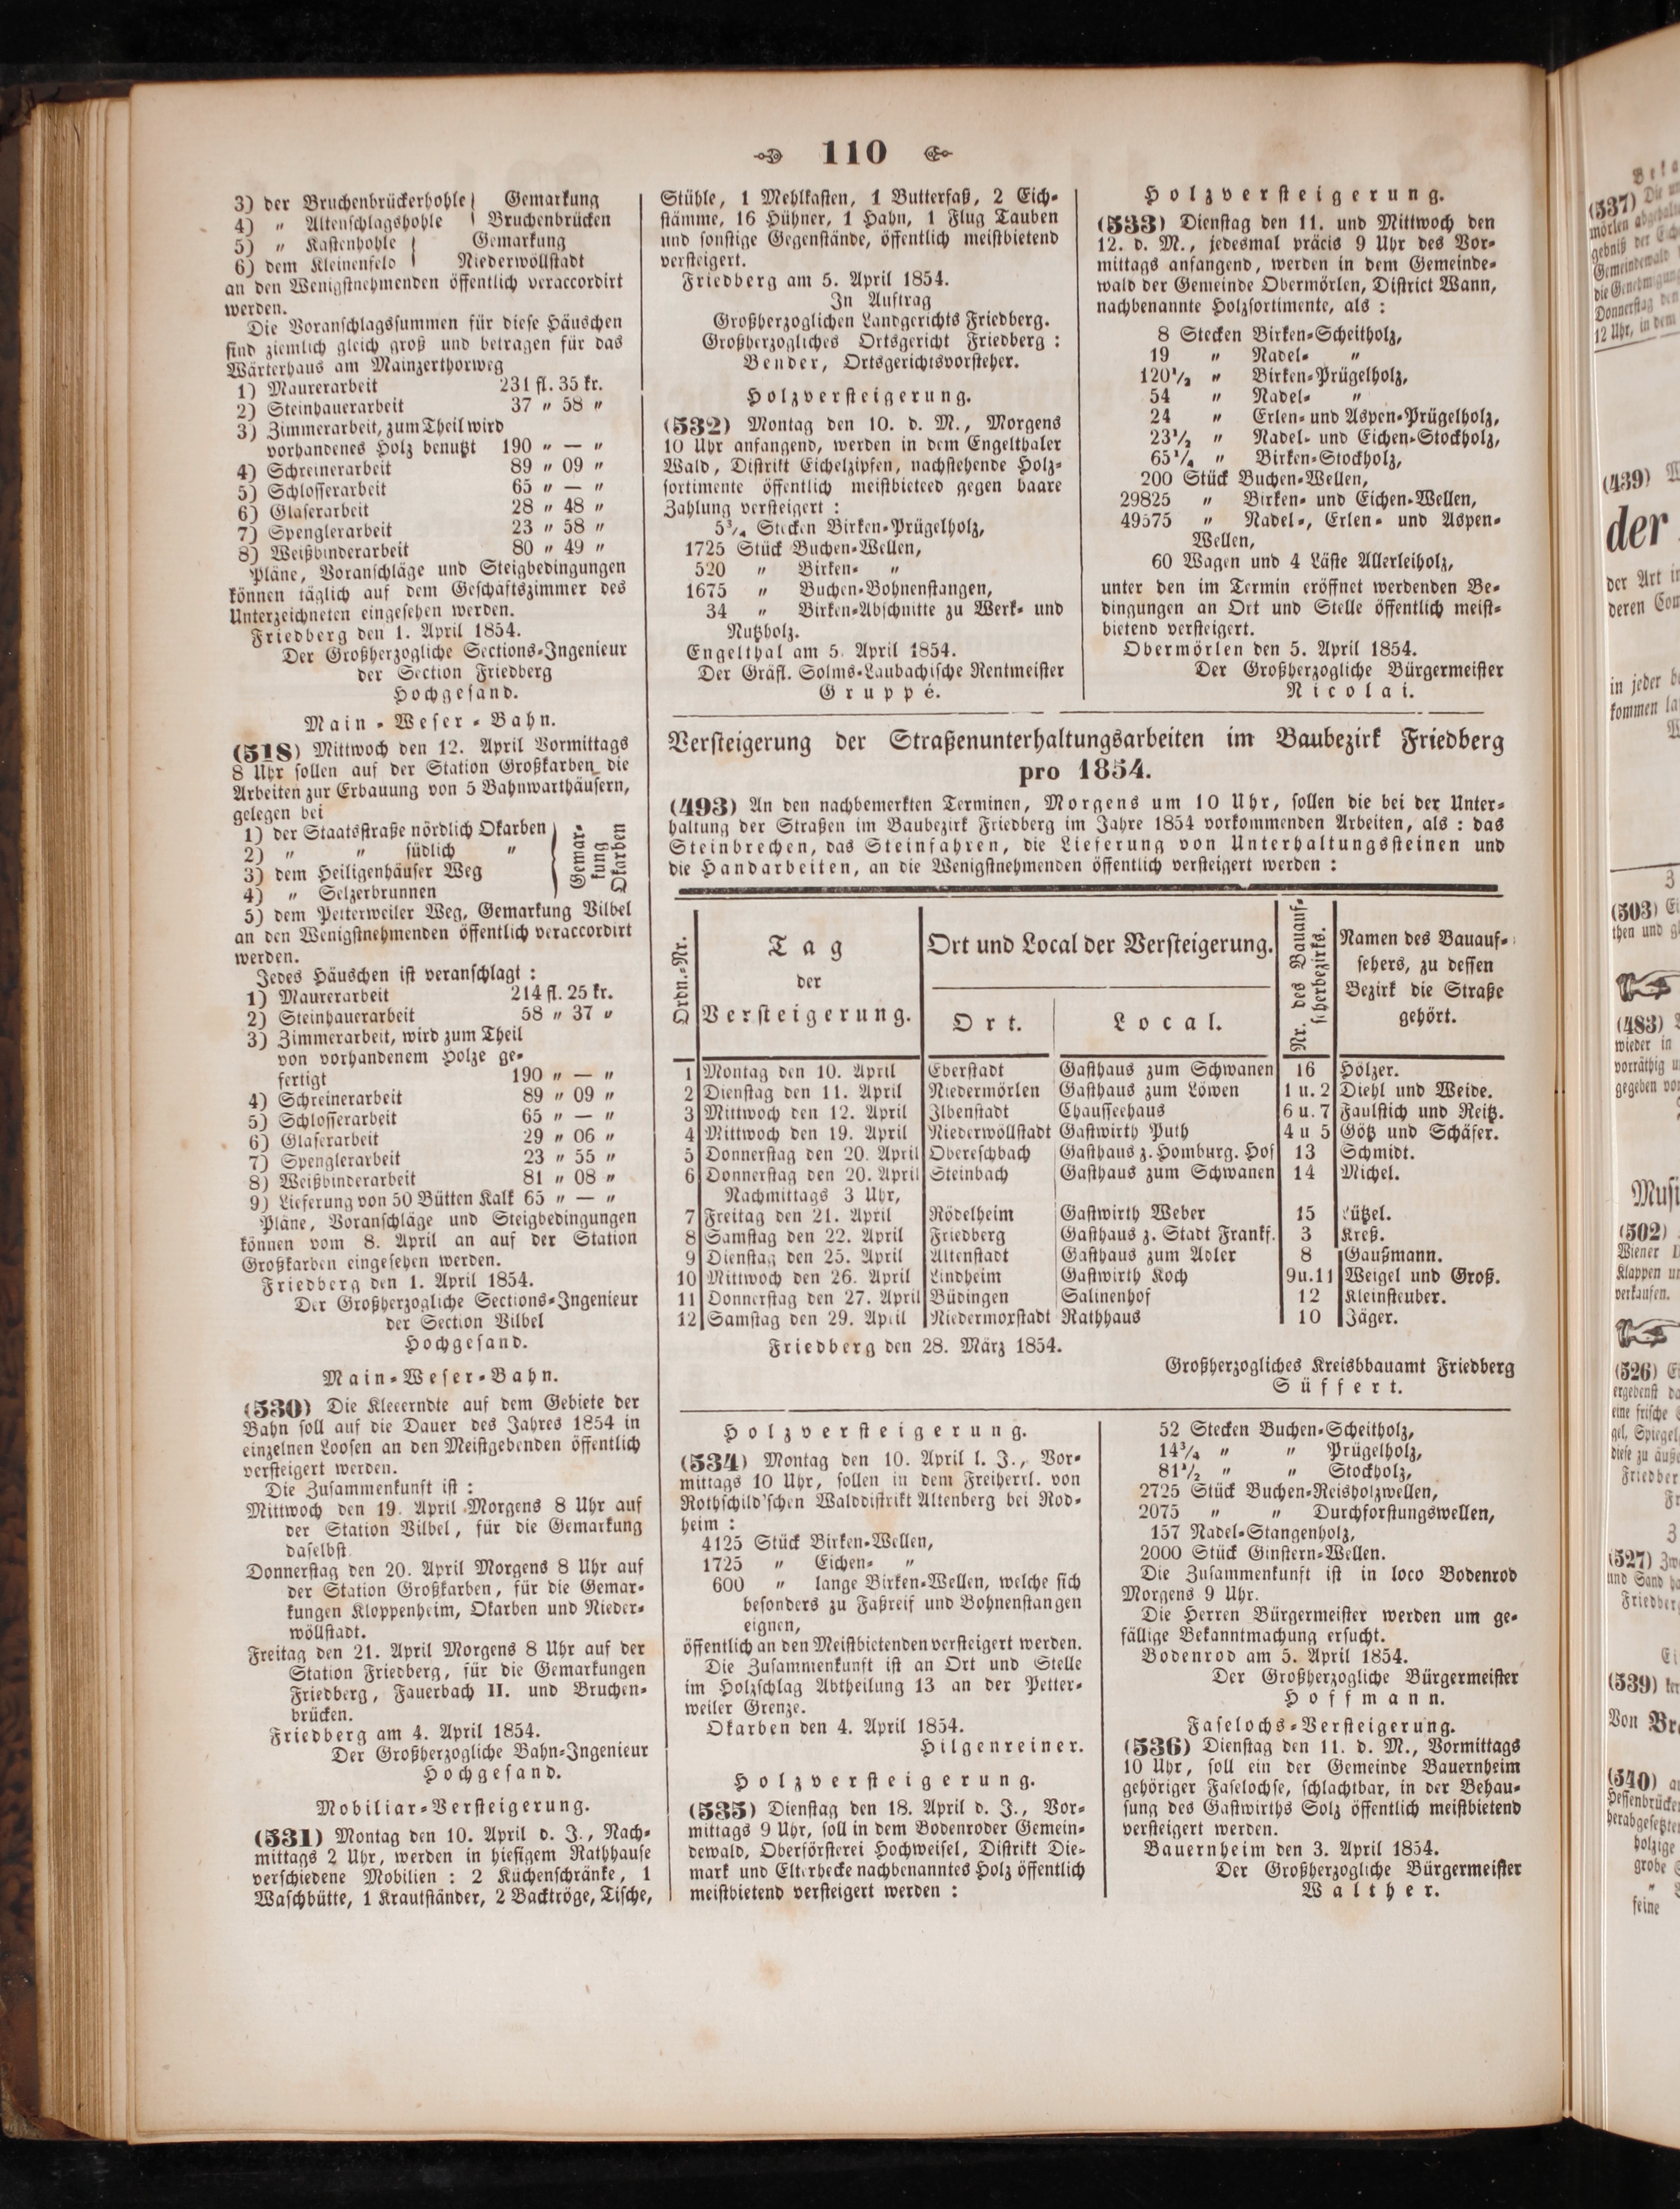 110
3) der Bruchenbrückerhohle } Gemarkung
4) „ Altenschlagshohle } Bruchenbrücken
5) „ Kastenhohle } Gemarkung
6) dem Kleinenfeld } Niederwöllstadt
an den Wenigstnehmenden öffentlich veraccordirt
werden.
Die Voranschlagssummen für diese Häuschen
sind ziemlich gleich groß und betragen für das
Wärterhaus am Mainzerthorweg
1) Maurerarbeit 231 fl. 35 kr.
2) Steinhauerarbeit 37 „ 58 „
3) Zimmerarbeit, zum Theil wird
vorhandenes Holz benutzt 190 „ — „
4) Schreinerarbeit 89 „ 09 „
5) Schlosserarbeit 65 „ — „
6) Glaserarbeit 28 „ 48 „
7) Spenglerarbeit 23 „ 58 „
8) Weißbinderarbeit 80 „ 49 „
Pläne, Voranschläge und Steigbedingungen
können täglich auf dem Geschäftszimmer des
Unterzeichneten eingesehen werden.
Friedberg den 1. April 1854.
Der Großherzogliche Sections-Ingenieur
der Section Friedberg
Hochgesand.
Main-Weser-Bahn.
(518) Mittwoch den 12. April Vormittags
8 Uhr sollen auf der Station Großkarben die
Arbeiten zur Erbauung von 5 Bahnwarthäusern,
gelegen bei
1) der Staatsstraße nördlich Okarben
2) „ „ südlich „
3) dem Heiligenhäuser Weg
4) „ Selzerbrunnen
Gemar-
kung
Okarben
5) dem Petterweiler Weg, Gemarkung Vilbel
an den Wenigstnehmenden öffentlich veraccordirt
werden.
Jedes Häuschen ist veranschlagt :
1) Maurerarbeit 214 fl. 25 kr.
2) Steinhauerarbeit 58 „ 37 „
3) Zimmerarbeit, wird zum Theil
von vorhandenem Holze ge-
fertigt 190 „ — „
4) Schreinerarbeit 89 „ 09 „
5) Schlosserarbeit 65 „ — „
6) Glaserarbeit 29 „ 06 „
7) Spenglerarbeit 23 „ 55 „
8) Weißbinderarbeit 81 „ 08 „
9) Lieferung von 50 Bütten Kalk 65 „ — „
Pläne, Voranschläge und Steigbedingungen
können vom 8. April an auf der Station
Großkarben eingesehen werden.
Friedberg den 1. April 1854.
Der Großherzogliche Sections-Ingenieur
der Section Vilbel
Hochgesand.
Main-Weser-Bahn.
(530) Die Kleeerndte auf dem Gebiete der
Bahn soll auf die Dauer des Jahres 1854 in
einzelnen Loosen an den Meistgebenden öffentlich
versteigert werden.
Die Zusammenkunft ist :
Mittwoch den 19. April Morgens 8 Uhr auf
der Station Vilbel, für die Gemarkung
daselbst.
Donnerstag den 20. April Morgens 8 Uhr auf
der Station Großkarben, für die Gemar-
kungen Kloppenheim, Okarben und Nieder-
wöllstadt.
Freitag den 21. April Morgens 8 Uhr auf der
Station Friedberg, für die Gemarkungen
Friedberg, Fauerbach II. und Bruchen-
brücken.
Friedberg am 4. April 1854.
Der Großherzogliche Bahn-Ingenieur
Hochgesand.
Mobiliar-Versteigerung.
(531) Montag den 10. April d. J., Nach-
mittags 2 Uhr, werden in hiesigem Rathhause
verschiedene Mobilien : 2 Küchenschränke, 1
Waschbütte, 1 Krautständer, 2 Backtröge, Tische,
Stühle, 1 Mehlkasten, 1 Butterfaß, 2 Eich-
stämme, 16 Hühner, 1 Hahn, 1 Flug Tauben
und sonstige Gegenstände, öffentlich meistbietend
versteigert.
Friedberg am 5. April 1854.
In Auftrag
Großherzoglichen Landgerichts Friedberg.
Großherzogliches Ortsgericht Friedberg :
Bender, Ortsgerichtsvorsteher.
Holzversteigerung.
(532) Montag den 10. d. M., Morgens
10 Uhr anfangend, werden in dem Engelthaler
Wald, Distrikt Eichelzipfen, nachstehende Holz-
sortimente öffentlich meistbieteed gegen baare
Zahlung versteigert :
5¾ Stecken Birken-Prügelholz,
1725 Stück Buchen-Wellen,
520 „ Birken- „
1675 „ Buchen-Bohnenstangen,
34 „ Birken-Abschnitte zu Werk- und
Nutzholz.
Engelthal am 5. April 1854.
Der Gräfl. Solms-Laubachische Rentmeister
Gruppé.
Holzversteigerung.
(533) Dienstag den 11. und Mittwoch den
12. d. M., jedesmal präcis 9 Uhr des Vor-
mittags anfangend, werden in dem Gemeinde-
wald der Gemeinde Obermörlen, District Wann,
nachbenannte Holzsortimente, als :
8 Stecken Birken-Scheitholz,
19 „ Nadel- „
120½ „ Birken-Prügelholz,
54 „ Nadel- „
24 „ Erlen- und Aspen-Prügelholz,
23½ „ Nadel- und Eichen-Stockholz,
65¼ „ Birken-Stockholz,
200 Stück Buchen-Wellen,
29825 „ Birken- und Eichen-Wellen,
49575 „ Nadel-, Erlen- und Aspen-
Wellen,
60 Wagen und 4 Läste Allerleiholz,
unter den im Termin eröffnet werdenden Be-
dingungen an Ort und Stelle öffentlich meist-
bietend versteigert.
Obermörlen den 5. April 1854.
Der Großherzogliche Bürgermeister
Nicolai.
Versteigerung der Straßenunterhaltungsarbeiten im Baubezirk Friedberg
pro 1854.
(493) An den nachbemerkten Terminen, Morgens um 10 Uhr, sollen die bei der Unter-
haltung der Straßen im Baubezirk Friedberg im Jahre 1854 vorkommenden Arbeiten, als : das
Steinbrechen, das Steinfahren, die Lieferung von Unterhaltungssteinen und
die Handarbeiten, an die Wenigstnehmenden öffentlich versteigert werden :
Ordn.-Nr.
Tag
der
Versteigerung.
Ort und Local der Versteigerung.
Ort. Local.
Nr. des Bauauf-
seherbezirks.
Namen des Bauauf-
sehers, zu dessen
Bezirk die Straße
gehört.
1 Montag den 10. April Eberstadt Gasthaus zum Schwanen 16 Hölzer.
2 Dienstag den 11. April Niedermörlen Gasthaus zum Löwen 1 u. 2 Diehl und Weide.
3 Mittwoch den 12. April Ilbenstadt Chausseehaus 6 u. 7 Faulstich und Reitz.
4 Mittwoch den 19. April Niederwöllstadt Gastwirth Puth 4 u 5 Götz und Schäfer.
5 Donnerstag den 20. April Obereschbach Gasthaus z. Homburg. Hof 13 Schmidt.
6 Donnerstag den 20. April Steinbach Gasthaus zum Schwanen 14 Michel.
Nachmittags 3 Uhr,
7 Freitag den 21. April Rödelheim Gastwirth Weber 15 Lützel.
8 Samstag den 22. April Friedberg Gasthaus z. Stadt Frankf. 3 Kreß.
9 Dienstag den 25. April Altenstadt Gasthaus zum Adler 8 Gaußmann.
10 Mittwoch den 26. April Lindheim Gastwirth Koch 9u.11 Weigel und Groß.
11 Donnerstag den 27. April Büdingen Salinenhof 12 Kleinsteuber.
12 Samstag den 29. April Niedermoxstadt Rathhaus 10 Jäger.
Friedberg den 28. März 1854.
Großherzogliches Kreisbbauamt Friedberg
Süffert.
Holzversteigerung.
(534) Montag den 10. April l. J., Vor-
mittags 10 Uhr, sollen in dem Freiherrl. von
Rothschild'schen Walddistrikt Altenberg bei Rod-
heim :
4125 Stück Birken-Wellen,
1725 „ Eichen- „
600 „ lange Birken-Wellen, welche sich
besonders zu Faßreif und Bohnenstangen
eignen,
öffentlich an den Meistbietenden versteigert werden.
Die Zusammenkunft ist an Ort und Stelle
im Holzschlag Abtheilung 13 an der Petter-
weiler Grenze.
Okarben den 4. April 1854.
Hilgenreiner.
Holzversteigerung.
(535) Dienstag den 18. April d. J., Vor-
mittags 9 Uhr, soll in dem Bodenroder Gemein-
dewald, Oberförsterei Hochweisel, Distrikt Die-
mark und Elterbecke nachbenanntes Holz öffentlich
meistbietend versteigert werden :
52 Stecken Buchen-Scheitholz,
14¾ „ „ Prügelholz,
81½ „ „ Stockholz,
2725 Stück Buchen-Reisholzwellen,
2075 „ „ Durchforstungswellen,
157 Nadel-Stangenholz,
2000 Stück Ginstern-Wellen.
Die Zusammenkunft ist in loco Bodenrod
Morgens 9 Uhr.
Die Herren Bürgermeister werden um ge-
fällige Bekanntmachung ersucht.
Bodenrod am 5. April 1854.
Der Großherzogliche Bürgermeister
Hoffmann.
Faselochs-Versteigerung.
(536) Dienstag den 11. d. M., Vormittags
10 Uhr, soll ein der Gemeinde Bauernheim
gehöriger Faselochse, schlachtbar, in der Behau-
sung des Gastwirths Solz öffentlich meistbietend
versteigert werden.
Bauernheim den 3. April 1854.
Der Großherzogliche Bürgermeister
Walther.
(537) Die
mörlen
gebniß der
Gemeindewald
die
Donnerstag den
12 Uhr, in dem
(439)
der
der Art
deren
in jeder
kommen
(503)
then und
(483)
wieder in
vorräthig
gegeben
(502)
Wiener
Klappen
verkaufen.
(526)
ergebenst
eine frische
diese zu
(527)
und Sand
(539)
Von
(540)
holzige
grobe
feine